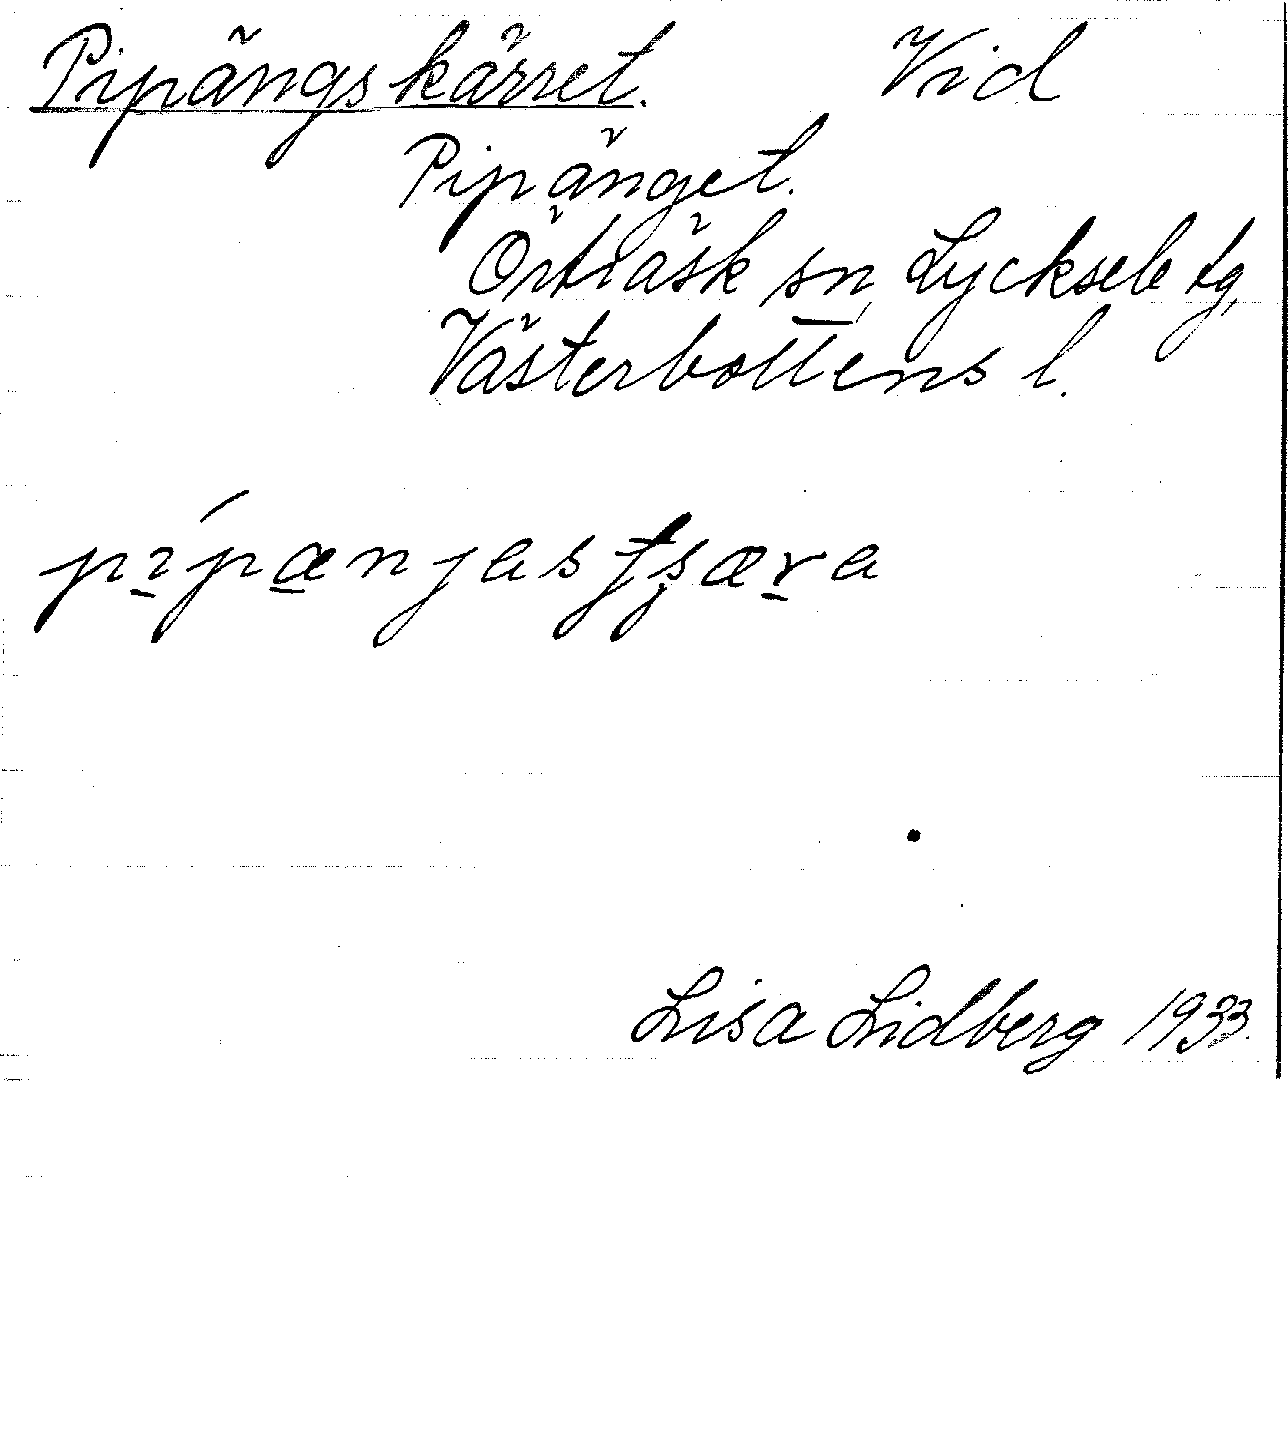 Pipängskärret. Vid
Pipänget.
Örträsk sn, Lycksele tg,
Västerbottens l.
pɪ́pænjasʈʂæra
Lisa Lidberg 1933.